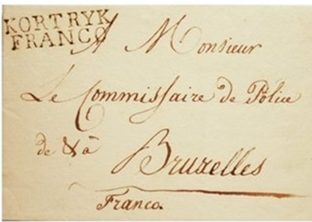 KORTRYK
FRANCO
A Monsieur
Le Commissaire de Police
de & à
Bruxelles
Franco.